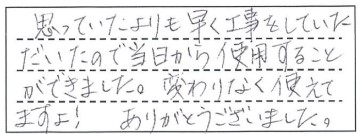 思っていたよりも早く工事をしていた
だいたので当日から使用すること
ができました。変わりなく使えて
ますよ! ありがとうございました。